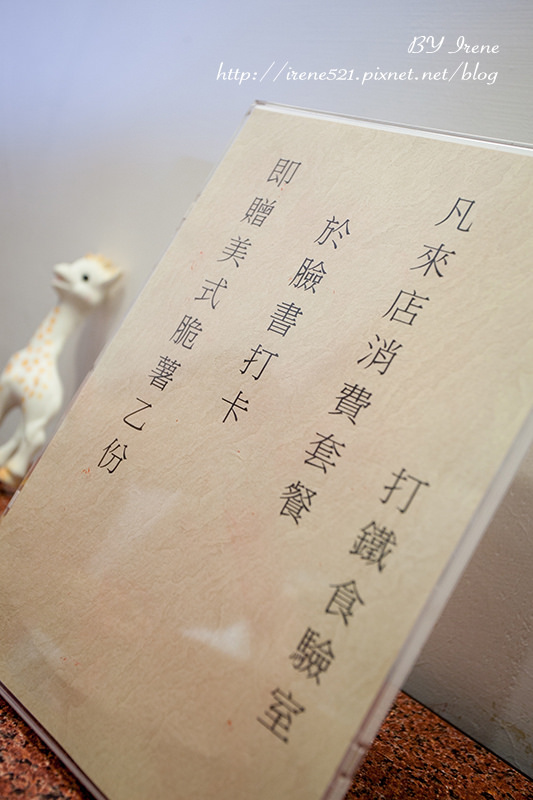 BY Irene
http://irene521.pixnet.net/blog
凡來店消費套餐
於臉書打卡
即贈美式脆薯乙份
打鐵食驗室